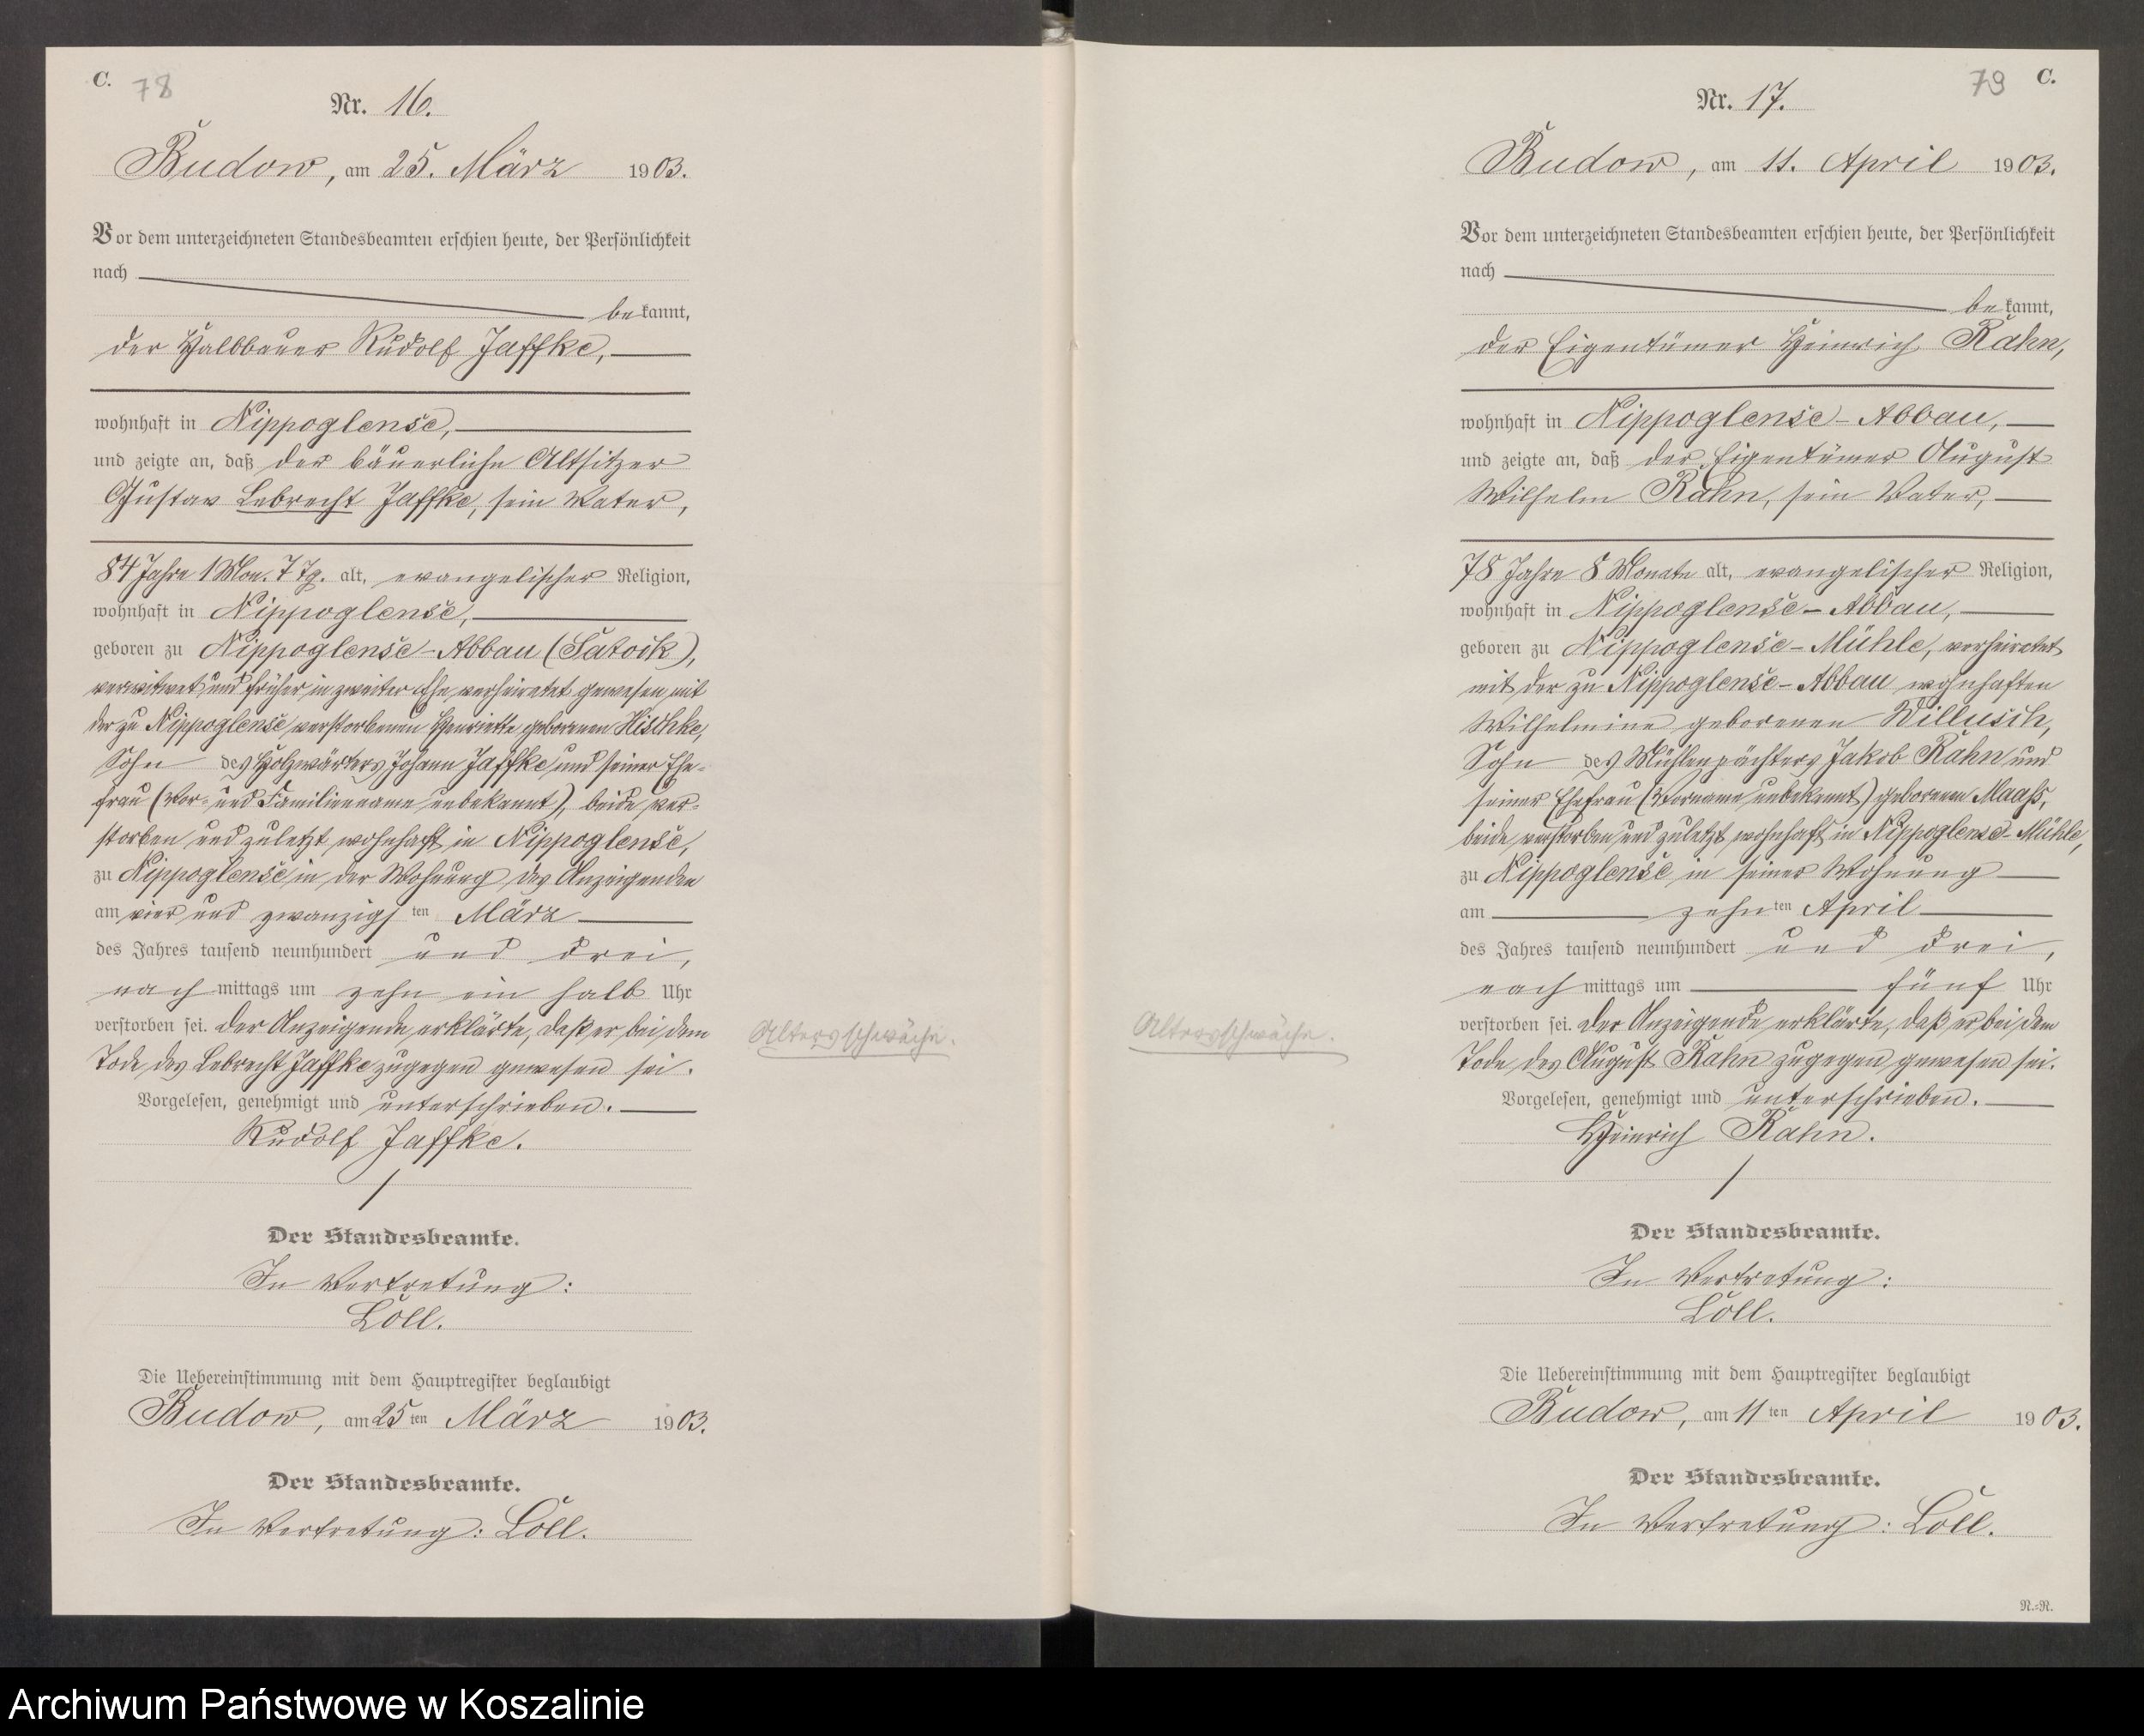 C. 78
Nr. 16.
Budow, am 25. März 1903.
Vor dem unterzeichneten Standesbeamten erschien heute, der Persönlichkeit
nach
bekannt,
der Halbbauer Rudolf Jaffke,
wohnhaft in Nippoglense,
und zeigte an, daß der bäuerliche Altsitzer
Gustav Lebrecht Jaffke, sein Vater,
84 Jahre 1 Mon. 7 Tg. alt, evangelischer Religion,
wohnhaft in Nippoglense,
geboren zu Nippoglense-Abbau (Satoik),
verwitwet und früher in zweiter Ehe verheiratet gewesen mit
der zu Nippoglense verstorbenen Henriette geborenen Hischke,
Sohn des Holzwärters Johann Jaffke und seiner Ehe-
frau (Vor- und Familienname unbekannt), beide ver-
storben und zuletzt wohnhaft in Nippoglense,
zu Nippoglense in der Wohnung des Anzeigenden
am vier und zwanzigsten März
des Jahres tausend neunhundert und drei,
nachmittags um zehn ein halb Uhr
verstorben sei. Der Anzeigende erklärte, daß er bei dem
Tode des Lebrecht Jaffke zugegen gewesen sei.
Altersschwäche.
Vorgelesen, genehmigt und unterschrieben.
Rudolf Jaffke.
Der Standesbeamte.
In Vertretung:
Löll.
Die Uebereinstimmung mit dem Hauptregister beglaubigt
Budow, am 25ten März 1903.
Der Standesbeamte.
In Vertretung: Löll.
79 C.
Nr. 17.
Budow, am 11. April 1903.
Vor dem unterzeichneten Standesbeamten erschien heute, der Persönlichkeit
nach
bekannt,
der Eigentümer Heinrich Rahn,
wohnhaft in Nippoglense-Abbau,
und zeigte an, daß der Eigentümer August
Wilhelm Rahn, sein Vater,
78 Jahre 8 Monate alt, evangelischer Religion,
wohnhaft in Nippoglense-Abbau,
geboren zu Nippoglense-Mühle, verheiratet
mit der zu Nippoglense-Abbau wohnhaften
Wilhelmine geborenen Willusch,
Sohn des Mühlenpächters Jakob Rahn und
seiner Ehefrau (Vorname unbekannt) geborenen Maaß,
beide verstorben und zuletzt wohnhaft in Nippoglense-Mühle,
zu Nippoglense in seiner Wohnung
am zehnten April
des Jahres tausend neunhundert und drei,
nachmittags um fünf Uhr
verstorben sei. Der Anzeigende erklärte, daß er bei dem
Tode des August Rahn zugegen gewesen sei.
Altersschwäche.
Vorgelesen, genehmigt und unterschrieben.
Heinrich Rahn.
Der Standesbeamte.
In Vertretung:
Löll.
Die Uebereinstimmung mit dem Hauptregister beglaubigt
Budow, am 11ten April 1903.
Der Standesbeamte.
In Vertretung: Löll.
N.-N.
Archiwum Państwowe w Koszalinie